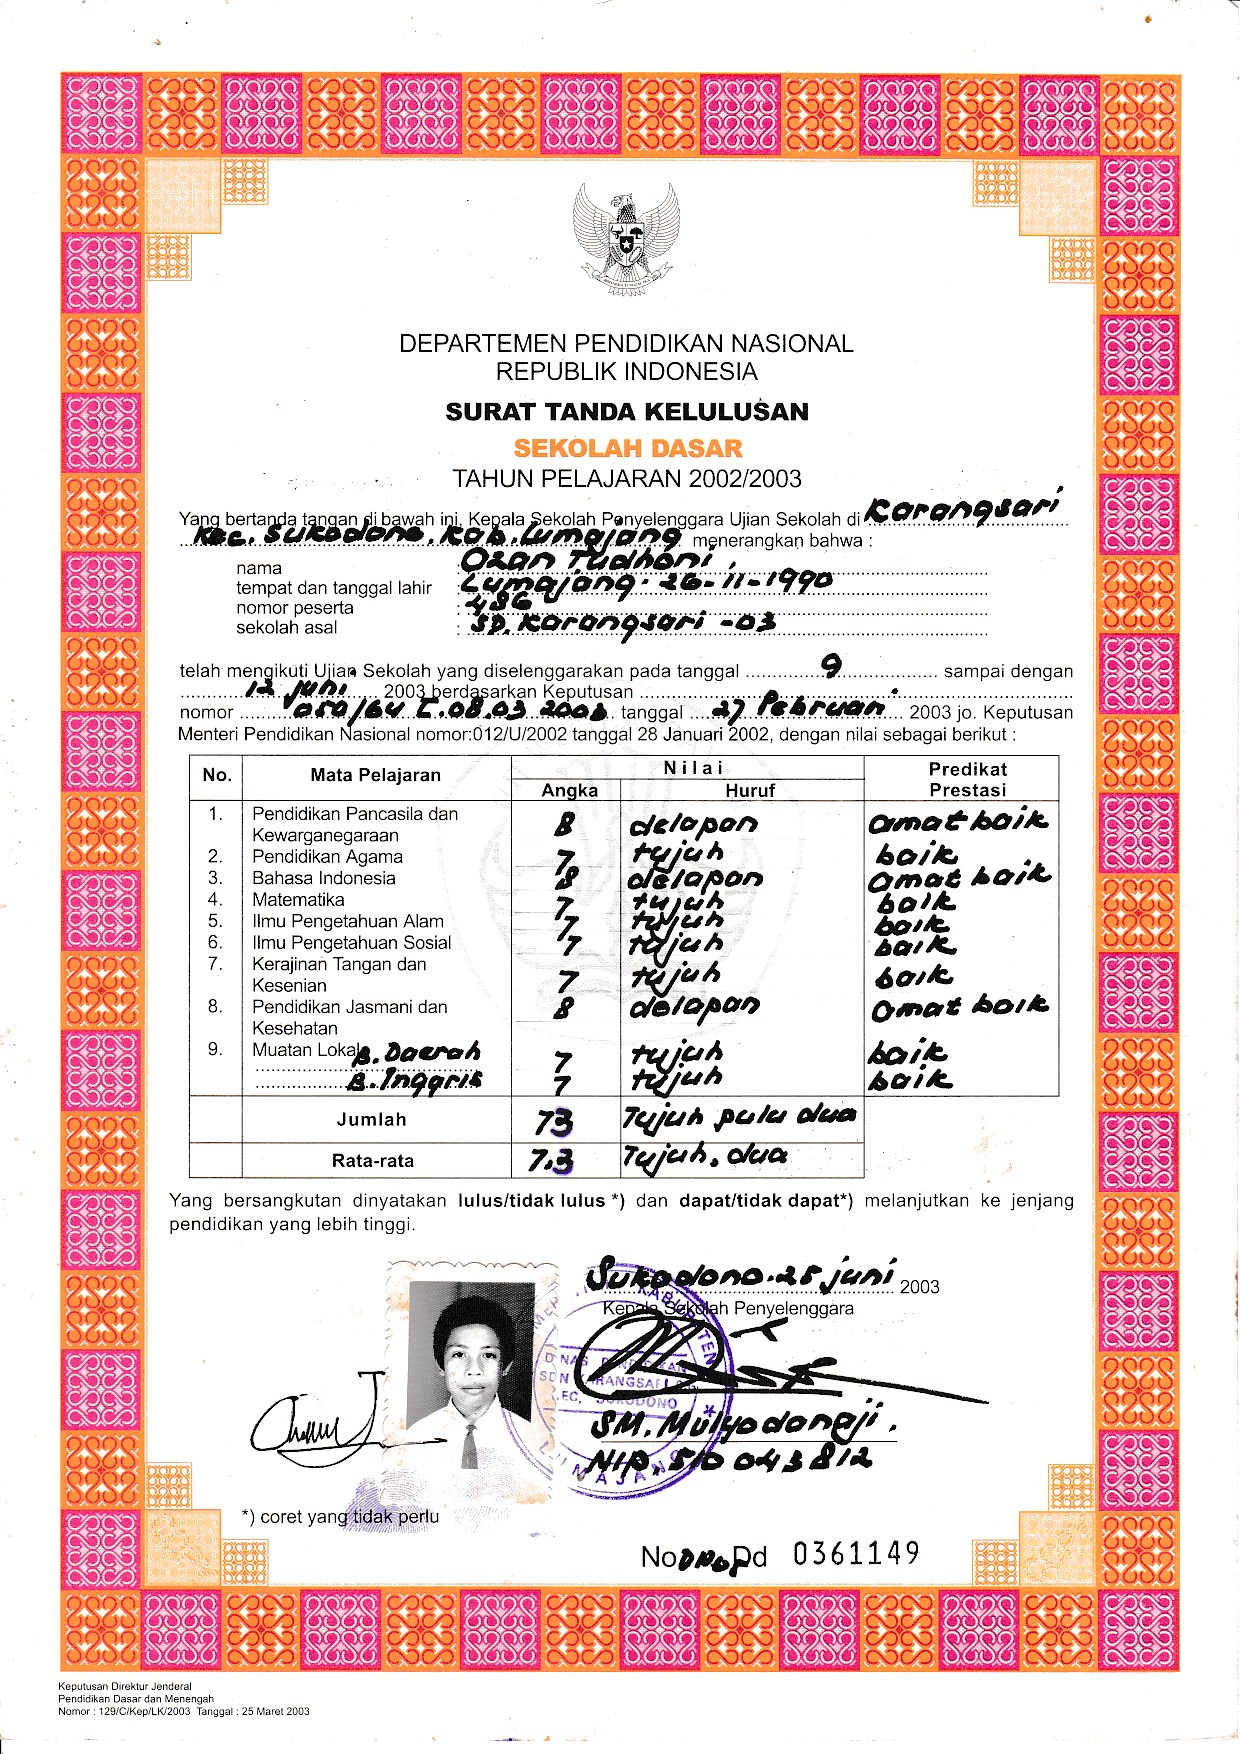 DEPARTEMEN PENDIDIKAN NASIONAL
REPUBLIK INDONESIA
SURAT TANDA KELULUSAN
SEKOLAH DASAR
TAHUN PELAJARAN 2002/2003
Yang bertanda tangan di bawah ini, Kepala Sekolah Penyelenggara Ujian Sekolah di Karangsari
Kec. Sukodono. Kab. Lumajang menerangkan bahwa :
nama : Ozan Tudhoni,
tempat dan tanggal lahir : Lumajang. 26-11-1990
nomor peserta : 486
sekolah asal : SD. Karangsari -03
telah mengikuti Ujian Sekolah yang diselenggarakan pada tanggal 9 sampai dengan
12 juni 2003 berdasarkan Keputusan
nomor tanggal 27 Pebruari 2003 jo. Keputusan
Menteri Pendidikan Nasional nomor:012/U/2002 tanggal 28 Januari 2002, dengan nilai sebagai berikut :
No. Mata Pelajaran Nilai Predikat Prestasi
Angka Huruf
1. Pendidikan Pancasila dan Kewarganegaraan 8 delapan amat baik
2. Pendidikan Agama 7 tujuh baik
3. Bahasa Indonesia 8 delapan amat baik
4. Matematika 7 tujuh baik
5. Ilmu Pengetahuan Alam 7 tujuh baik
6. Ilmu Pengetahuan Sosial 7 tujuh baik
7. Kerajinan Tangan dan Kesenian 7 tujuh baik
8. Pendidikan Jasmani dan Kesehatan 8 delapan amat baik
9. Muatan Lokal B. Daerah 7 tujuh baik
B. Inggris 7 tujuh baik
Jumlah 73 Tujuh pulu dua
Rata-rata 7,3 Tujuh, dua
Yang bersangkutan dinyatakan lulus/tidak lulus *) dan dapat/tidak dapat*) melanjutkan ke jenjang
pendidikan yang lebih tinggi.
Sukodono. 25 juni 2003
Kepala Sekolah Penyelenggara
DINAS PENDIDIKAN
SDN KARANGSARI
KEC. SUKODONO
LUMAJANG
SM. Mulyodongji.
NIP. 510 043 812
*) coret yang tidak perlu
No Dd 0361149
Keputusan Direktur Jenderal
Pendidikan Dasar dan Menengah
Nomor : 129/C/Kep/LK/2003 Tanggal : 25 Maret 2003